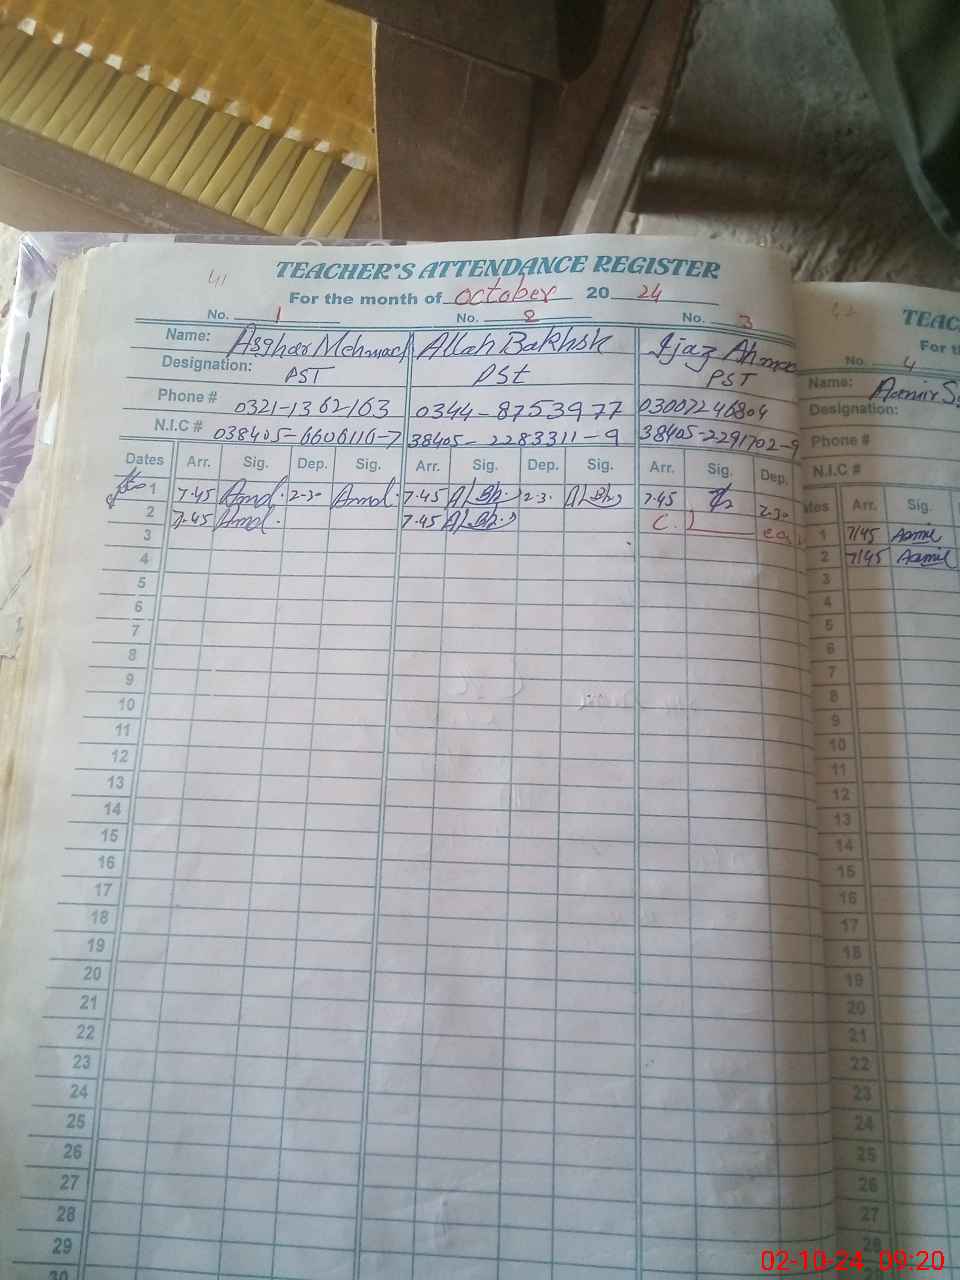 41
TEACHER'S ATTENDANCE REGISTER
For the month of October 2024
No. 1 No. 2 No. 3
Name: Asghar Mehmood Allah Bakhsh Ijaz Ahmad
Designation: PST PSt PST
Phone # 0321-1362163 0344-8753977 03007246804
N.I.C # 038405-6606110-7 38405-2283311-9 38405-2291702-9
Dates Arr. Sig. Dep. Sig. Arr. Sig. Dep. Sig. Arr. Sig. Dep.
1 7.45 2-30 7.45 2-3. 7.45 2-30
2 7.45 7.45
3
4
5
6
7
8
9
10
11
12
13
14
15
16
17
18
19
20
21
22
23
24
25
26
27
28
29
30
TEAC
For t
No. 4
Name: Aamir
Designation:
Phone #
N.I.C #
tes Arr. Sig.
1 7/45 Aamil
2 7/45 Aamil
3
4
5
6
7
8
9
10
11
12
13
14
15
16
17
18
19
20
21
22
23
24
25
26
27
28
02-10-24 09:20